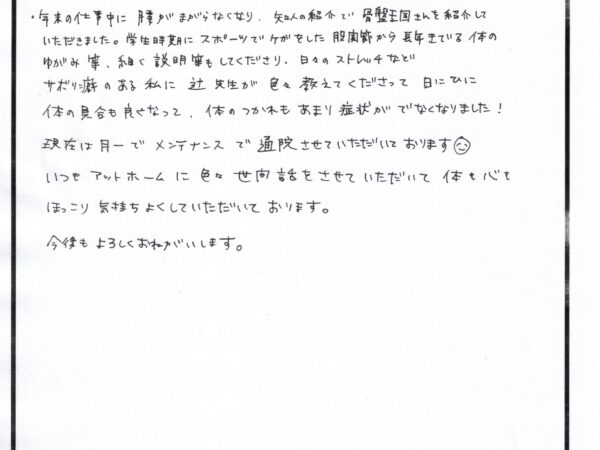 ・年末の仕事中に 腰がまがらなくなり、知人の紹介で 骨盤王国さんを紹介して
いただきました。学生時期に スポーツで ケガをした 股関節から 長年きている 体の
ゆがみ 等、細く 説明等もしてくださり、日々の ストレッチなど
サボリ癖の ある 私に 辻 先生が 色々 教えてくださって 日にひに
体の具合も良くなって、体のつかれもあまり症状がでなくなりました！
現在は月一で メンテナンス で 通院させていただいております☺
いつも アットホーム に 色々 世間話をさせていただいて 体も心も
ほっこり 気持ちよくしていただいて おります。
今後も よろしくおねがいします。